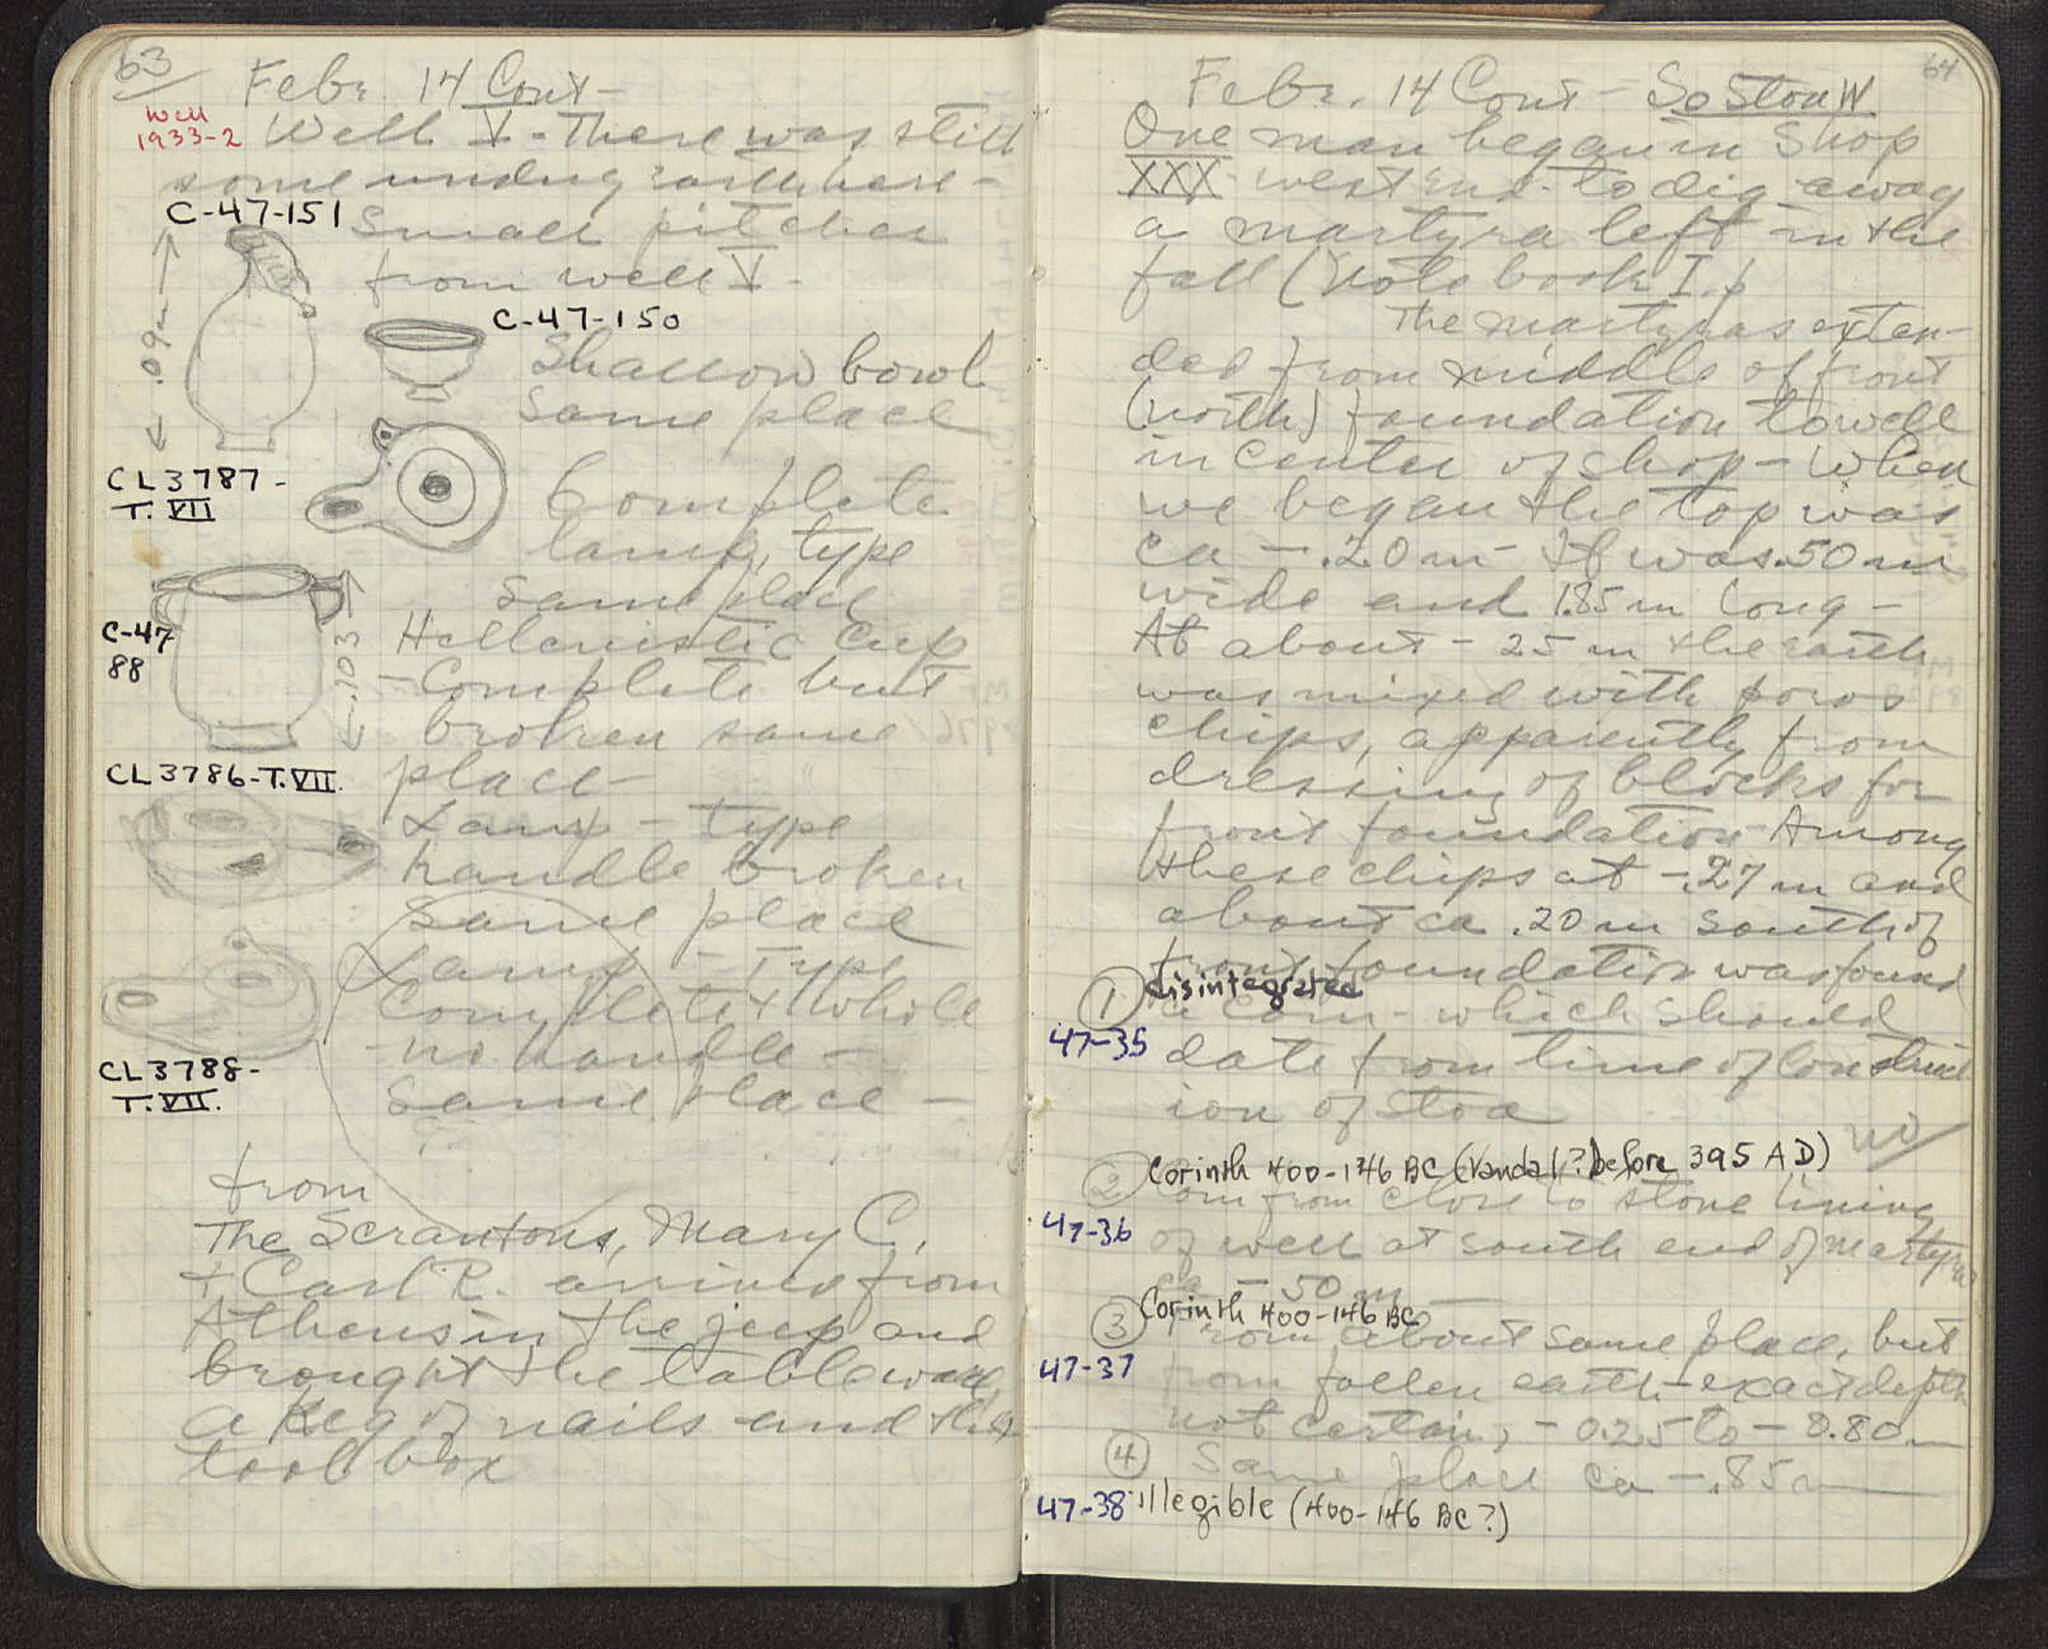 63
Febr. 14 Cont -
Well
1933-2
Well V - There was still
some undug earth here -
C-47-151
Small pitcher
from well V -
.09m
C-47-150
Shallow bowl
Same place
CL 3787 -
T. VII
Complete
lamp, type
Same place
C-47
88
.103
Hellenistic Cup
- Complete but
broken same
place -
CL 3786-T.VII.
Lamp - type
handle broken
Same place
Lamp - Type
Complete + Whole
- no handle -
Same place -
CL 3788-
T.VII.
from
The Scrantons, Mary C.
+ Carl R. arrived from
Athens in the jeep and
brought the tableware,
a keg of nails and the
tool box
64
Febr. 14 Cont - So Stoa W
One man began in Shop
XXX - west end - to dig away
a martyra left in the
fall (Note book I. p
The martyras exten-
ded from middle of front
(north) foundation to well
in center of shop - When
we began the top was
ca - .20 m - It was .50 m
wide and 1.85 m long -
At about - 25 m the earth
was mixed with poros
chips, apparently from
dressing of blocks for
front foundation - Among
these chips at - .27 m and
about ca .20 m south of
front foundation was found
① disintegrated
a coin - which should
47-35
date from time of construct
ion of Stoa
no
② Corinth 400-146 BC (Vandal? before 395 AD)
Coin from close to stone lining
47-36
of well at south end of martyra
ca - 50 m -
③ Corinth 400-146 BC
From about same place, but
47-37
from fallen earth - exact depth
not certain, - 0.25 to - 0.80 m
④ Same place ca - .85 m
47-38 illegible (400-146 BC?)